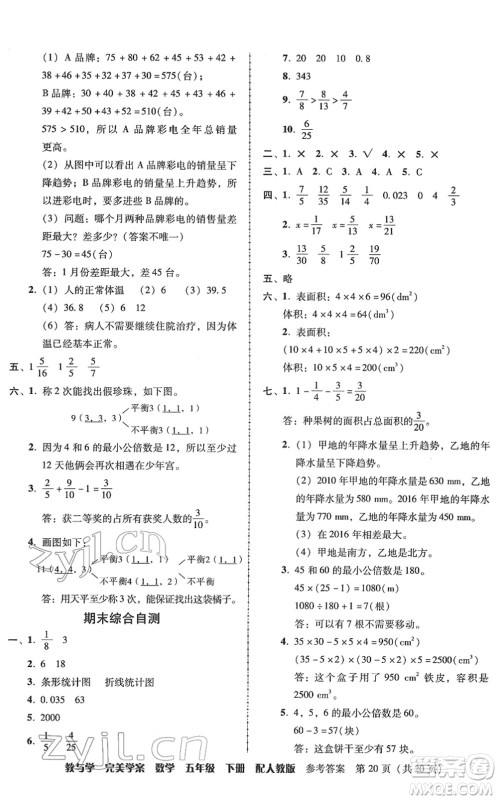 (1) A 品牌：75 + 80 + 60 + 50 + 42 +
38 + 26 + 35 + 37 + 30 + 50 + 52 =
575(台)
B 品牌：30 + 32 + 38 + 32 + 37 + 42 +
44 + 60 + 45 + 50 + 50 + 50 = 510(台)
575 > 510，所以 A 品牌彩电全年总销量
更高。
(2) 从图中可以看出 A 品牌彩电销量呈下
降趋势；B 品牌彩电销量呈上升趋势。
(3) 问题：哪个月两种品牌彩电的销量差
距最大？(答案不唯一)
75 − 30 = 45(台)
答：1 月份差距最大，差 45 台。
2. (1) 人的正常体温 (2) 6 (3) 39.5
(4) 36.8 (5) 39.2 38
(6) 答：病人不需要继续住院治疗，因为体
温已经基本正常。
五、1 5/16 1 1/2 5/7
六、1. 称 2 次能找出假珍珠，如下图。
9(3, 3, 3) 平衡3(1, 1, 1)
不平衡3(1, 1, 1)
2. 因为 4 和 6 的最小公倍数是 12，所以过
12 天他俩会再次相遇在少年宫。
3. 2/5 + 9/10 − 1 = 3/10
答：获二等奖的占所有获奖人数的 3/10。
4. 画图如下：
11(4, 4, 3) 平衡3(1, 1, 1)
不平衡4
答：用天平至少称 次，能保证找出这袋橘子。
期末综合自测
一、1. 1/8 3
2. 6 18
3. 条形统计图 折线统计图
4. 0.035 63
5. 2000
6. 1/5 4/25
7. 20 20 10 0.8
8. 343
9. 7/8 > 8/13 > 4/7
10. 6/25
二、1. × 2. × 3. √ 4. ×
三、1. A 2. C 3. A 4. A
四、1. 7/9 5/35 1/4 0.023 0 4 2/3
2. x = 1/15 x = 5/12 x = 13/9
3. 13/30 5/11 1/2 19/70
五、略
六、1. 表面积：4 × 4 × 6 = 96(dm²)
体积：4 × 4 × 4 = 64(dm³)
2. 表面积：
(10 × 4 + 10 × 5 + 5 × 4) × 2
= 220(cm²)
体积：10 × 5 × 4 = 200(cm³)
七、1. 1 − 1/4 − 3/5 = 3/20
答：种果树的面积占总面积的 3/20。
2. (1) 甲地的年降水量呈上升趋势，乙地的
年降水量呈下降趋势。
(2) 2010 年甲地的年降水量是 600 mm，
乙地是 770 mm。2015 年甲地的年降水
量是 450 mm，乙地是 690 mm。
(3) 答：在 2016 年相差最大。
(4) 答：甲地是南方，乙地是北方。
3. 45 和 60 的最小公倍数是 180。
45 × (25 − 1) = 1080(m)
1080 ÷ 180 + 1 = 7(根)
答：有 7 根不需要移动。
4. 35 × 30 − 5 × 5 × 4 = 950(cm²)
(35 − 5 × 2) × (30 − 5 × 2) × 5 = 2500(cm³)
答：这个盒子用了 950 cm² 铁皮，它的
容积是 2500 cm³。
5. 4 和 5 的最小公倍数是 20。
60 − 3 = 57(块)
答：这些糖果可能有 57 块。
教与学 完美学案 数学 五年级 下册 配人教版 参考答案 第 20 页（共 20 页）
zyjl.cn
zyjl.cn